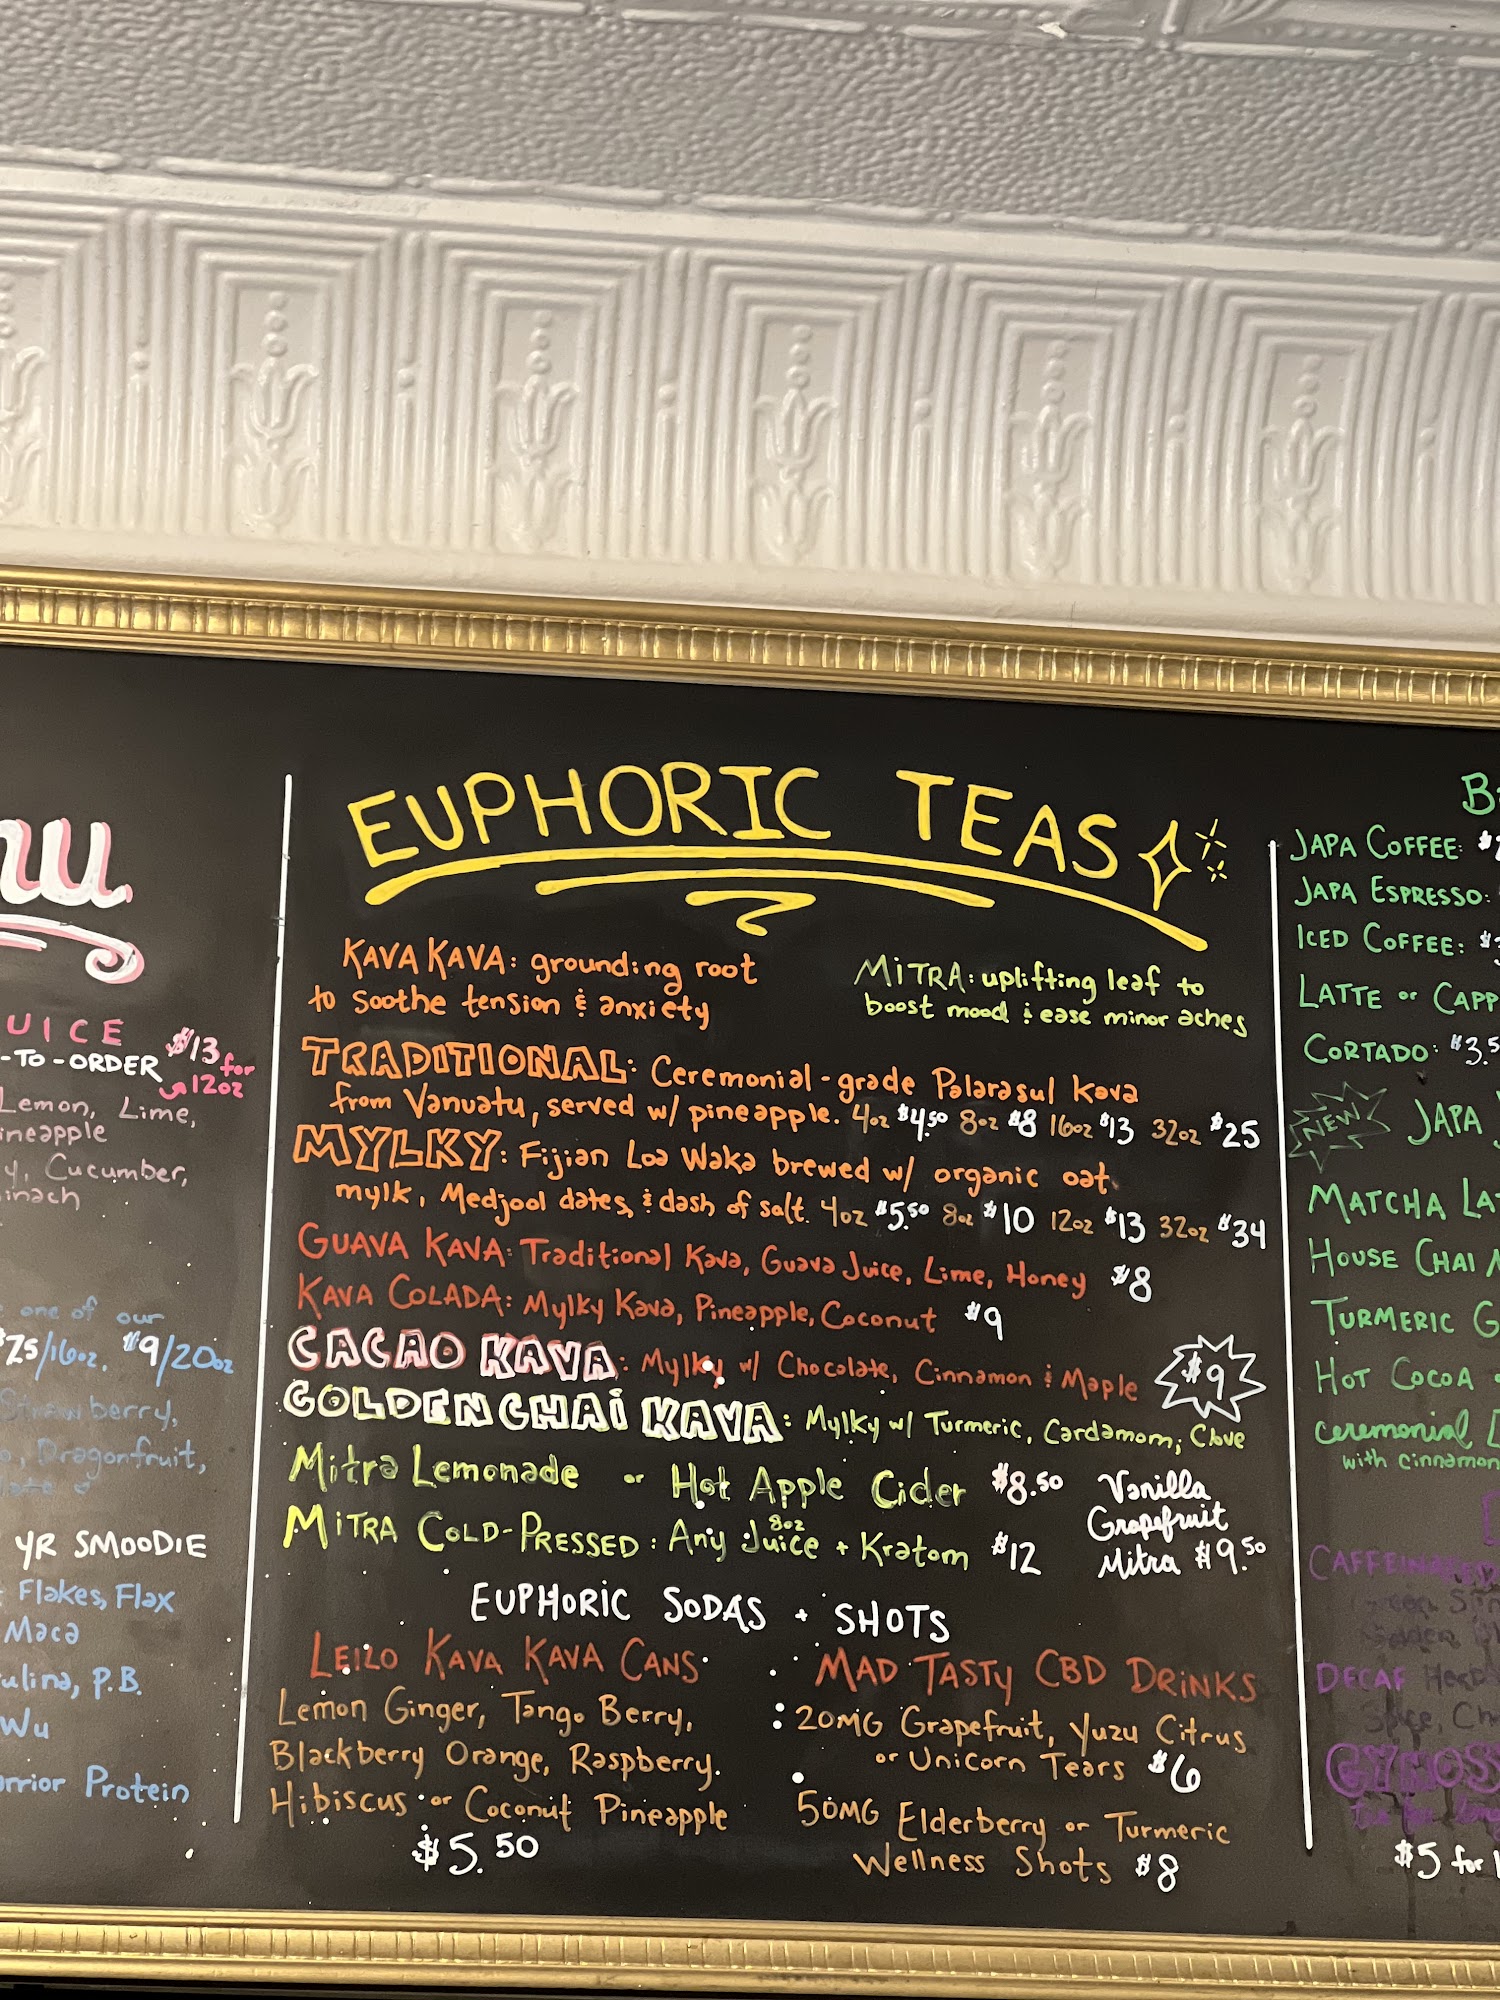 UICE
-TO-ORDER
$13 for
12oz
Lemon, Lime,
Cucumber,
one of our
/16oz. $9/20oz
Dragonfruit,
YR SMOODIE
Flakes, Flax
Maca
P.B.
Wu
Protein
EUPHORIC TEAS
KAVA KAVA: grounding root
to soothe tension & anxiety
MITRA: uplifting leaf to
boost mood & ease minor aches
TRADITIONAL: Ceremonial-grade Palarasul Kava
from Vanuatu, served w/ pineapple. 4oz $4.50 8oz $8 16oz $13 32oz $25
MYLKY: Fijian Loa Waka brewed w/ organic oat
mylk, Medjool dates, & dash of salt. 4oz $5.50 8oz $10 12oz $13 32oz $34
GUAVA KAVA: Traditional Kava, Guava Juice, Lime, Honey $8
KAVA COLADA: Mylky Kava, Pineapple, Coconut $9
CACAO KAVA: Mylky w/ Chocolate, Cinnamon & Maple $9
GOLDEN CHAI KAVA: Mylky w/ Turmeric, Cardamom, Clove
Mitra Lemonade or Hot Apple Cider $8.50
MITRA COLD-PRESSED: Any 8oz Juice + Kratom $12
Vanilla
Grapefruit
Mitra $9.50
EUPHORIC SODAS + SHOTS
LEILO KAVA KAVA CANS
Lemon Ginger, Tango Berry,
Blackberry Orange, Raspberry
Hibiscus or Coconut Pineapple
$5.50
MAD TASTY CBD DRINKS
20MG Grapefruit, Yuzu Citrus
or Unicorn Tears $6
50MG Elderberry or Turmeric
Wellness Shots $8
JAPA COFFEE:
JAPA ESPRESSO:
ICED COFFEE:
LATTE or CAPP
CORTADO: $3.5
NEW
JAPA
MATCHA LA
HOUSE CHAI
TURMERIC G
HOT COCOA
ceremonial
with cinnamon
DECAF
$5 for